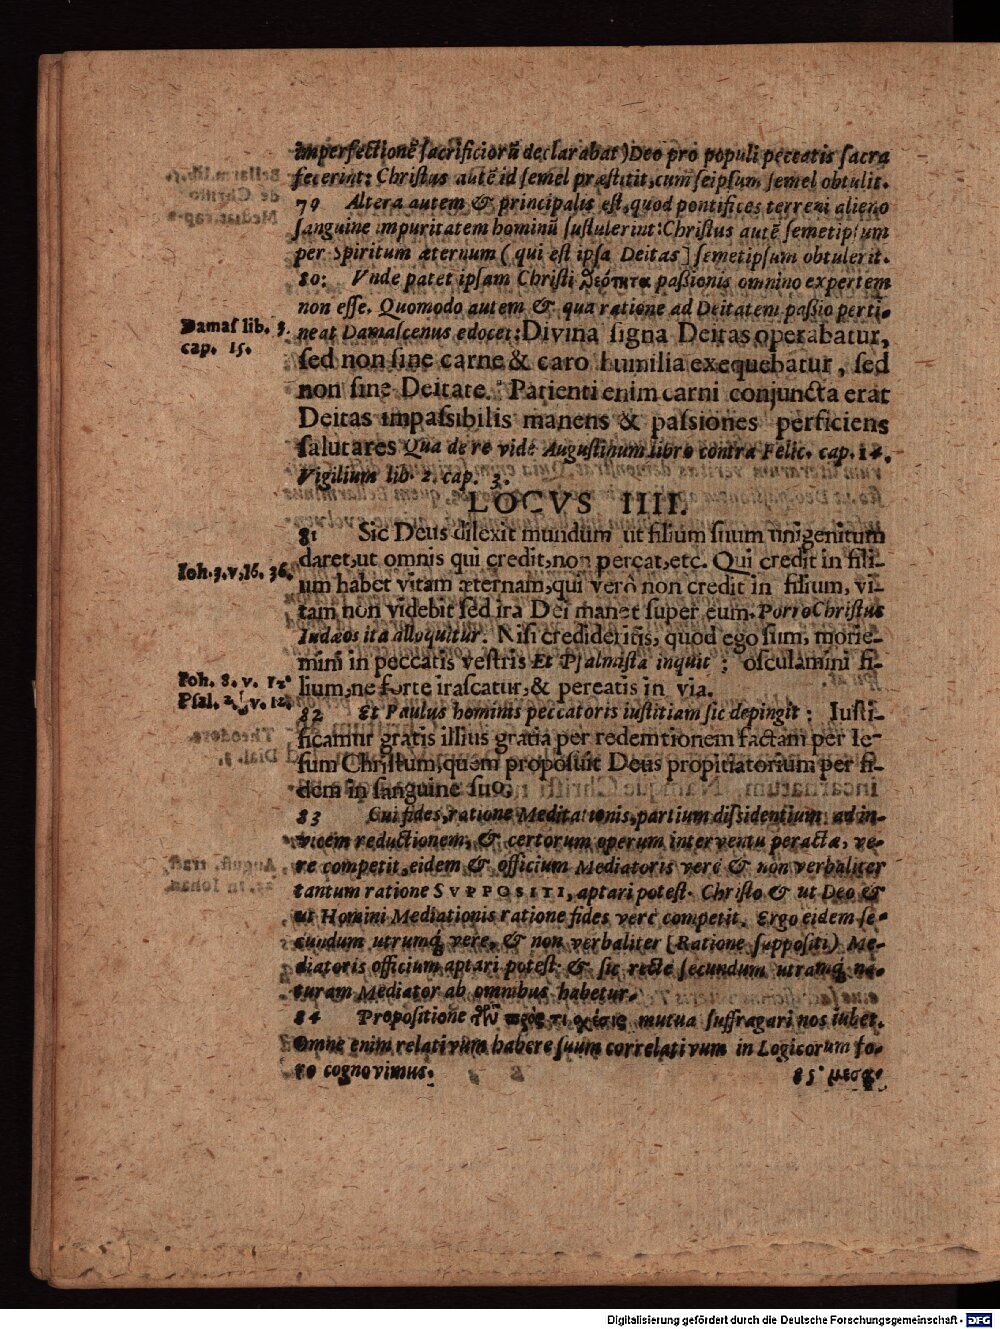 imperfectionẽ sacrificiorũ declarabat) Deo pro populi peccatis sacra
fecerint: Christus autẽ id semel præstitit, cum seipsum semel obtulit.
79 Altera autem & principalis est, quod pontifices terreni alieno
sanguine impuritatem hominũ sustulerint: Christus autẽ semetipsum
per Spiritum æternum (qui est ipsa Deitas] semetipsum obtulerit.
80: Vnde patet ipsam Christi θεότητα paßionis omnino expertem
non esse. Quomodo autem & qua ratione ad Deitatem paßio perti-
Damas lib. 3.
cap. 15.
neat Damascenus edocet: Divina signa Deitas operabatur,
sed non sine carne & caro humilia exequebatur, sed
non sine Deitate. Patienti enim carni conjuncta erat
Deitas impassibilis manens & passiones perficiens
salutares Qua de re vide Augustinum libro contra Felic. cap. 14.
Vigilium lib. 2. cap. 3.
LOCVS IIII.
81 Sic Deus dilexit mundum ut filium suum unigenitum
Ioh. 3. v, 16. 36.
daret, ut omnis qui credit, non pereat, etc. Qui credit in fili-
um habet vitam æternam, qui verò non credit in filium, vi-
tam non videbit sed ira Dei manet super eum. Porro Christus
Iudæos ita alloquitur. Nisi credideritis, quod ego sum, morie-
mini in peccatis vestris Et Psalmista inquit: osculamini fi-
Ioh. 8. v. 12.
Psal. 2. v. 12.
lium, ne forte irascatur, & pereatis in via.
82 Et Paulus hominis peccatoris iustitiam sic depingit: Iusti-
ficamur gratis illius gratia per redemtionem factam per Ie-
sum Christum, quem proposuit Deus propitiatorium per fi-
dem in sanguine suo.
83 Cui fides, ratione Meditationis, partium dissidentium ad in-
vicem reductionem, & certorum operum interventu peractæ, ve-
re competit, eidem & officium Mediatoris vere & non verbaliter
tantum ratione SVPPOSITI, aptari potest. Christo & ut Deo &
ut Homini Mediationis ratione fides verè competit. Ergo eidem se-
cundum utrumq́ vere, & non verbaliter [Ratione suppositi) Me-
diatoris officium aptari potest & sic recte secundum utramq́ na-
turam Mediator ab omnibus habetur.
84 Propositione τῶν πρός τι σχέσις mutua suffragari nos iubet.
Omne enim relativum habere suum correlativum in Logicorum fo-
ro cognovimus.
85. μεσα-
Digitalisierung gefördert durch die Deutsche Forschungsgemeinschaft - DFG